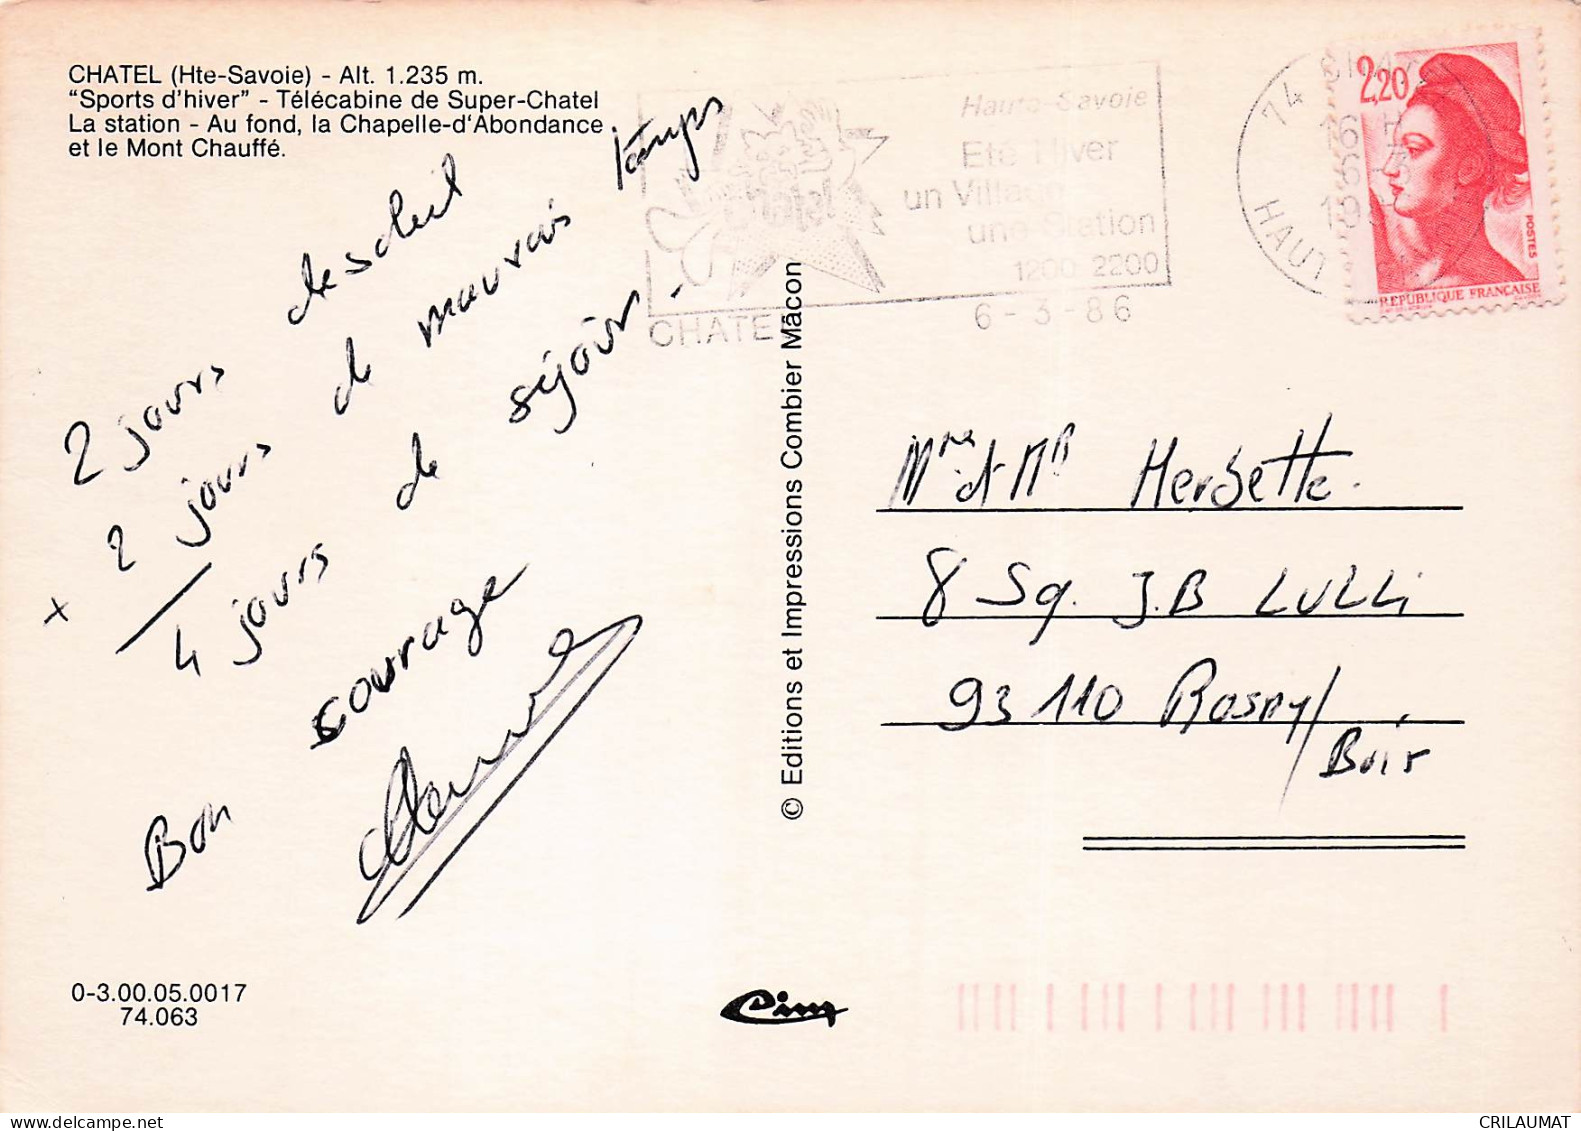 CHATEL (Hte-Savoie) - Alt. 1.235 m.
"Sports d'hiver" - Télécabine de Super-Chatel
La station - Au fond, la Chapelle-d'Abondance
et le Mont Chauffé.
2 jours de soleil
+ 2 jours de mauvais temps
4 jours de séjour.
Bon courage
0-3.00.05.0017
74.063
© Editions et Impressions Combier Mâcon
Cim
Haute-Savoie
Eté Hiver
un Village
une Station
1200 2200
CHATEL
6-3-86
74
16 H
6-3
19
HAUT
2,20
POSTES
REPUBLIQUE FRANÇAISE
Mme et Mr Herbette.
8 Sq. J.B LULLI
93 110 Rosny/
Bois
CRILAUMAT